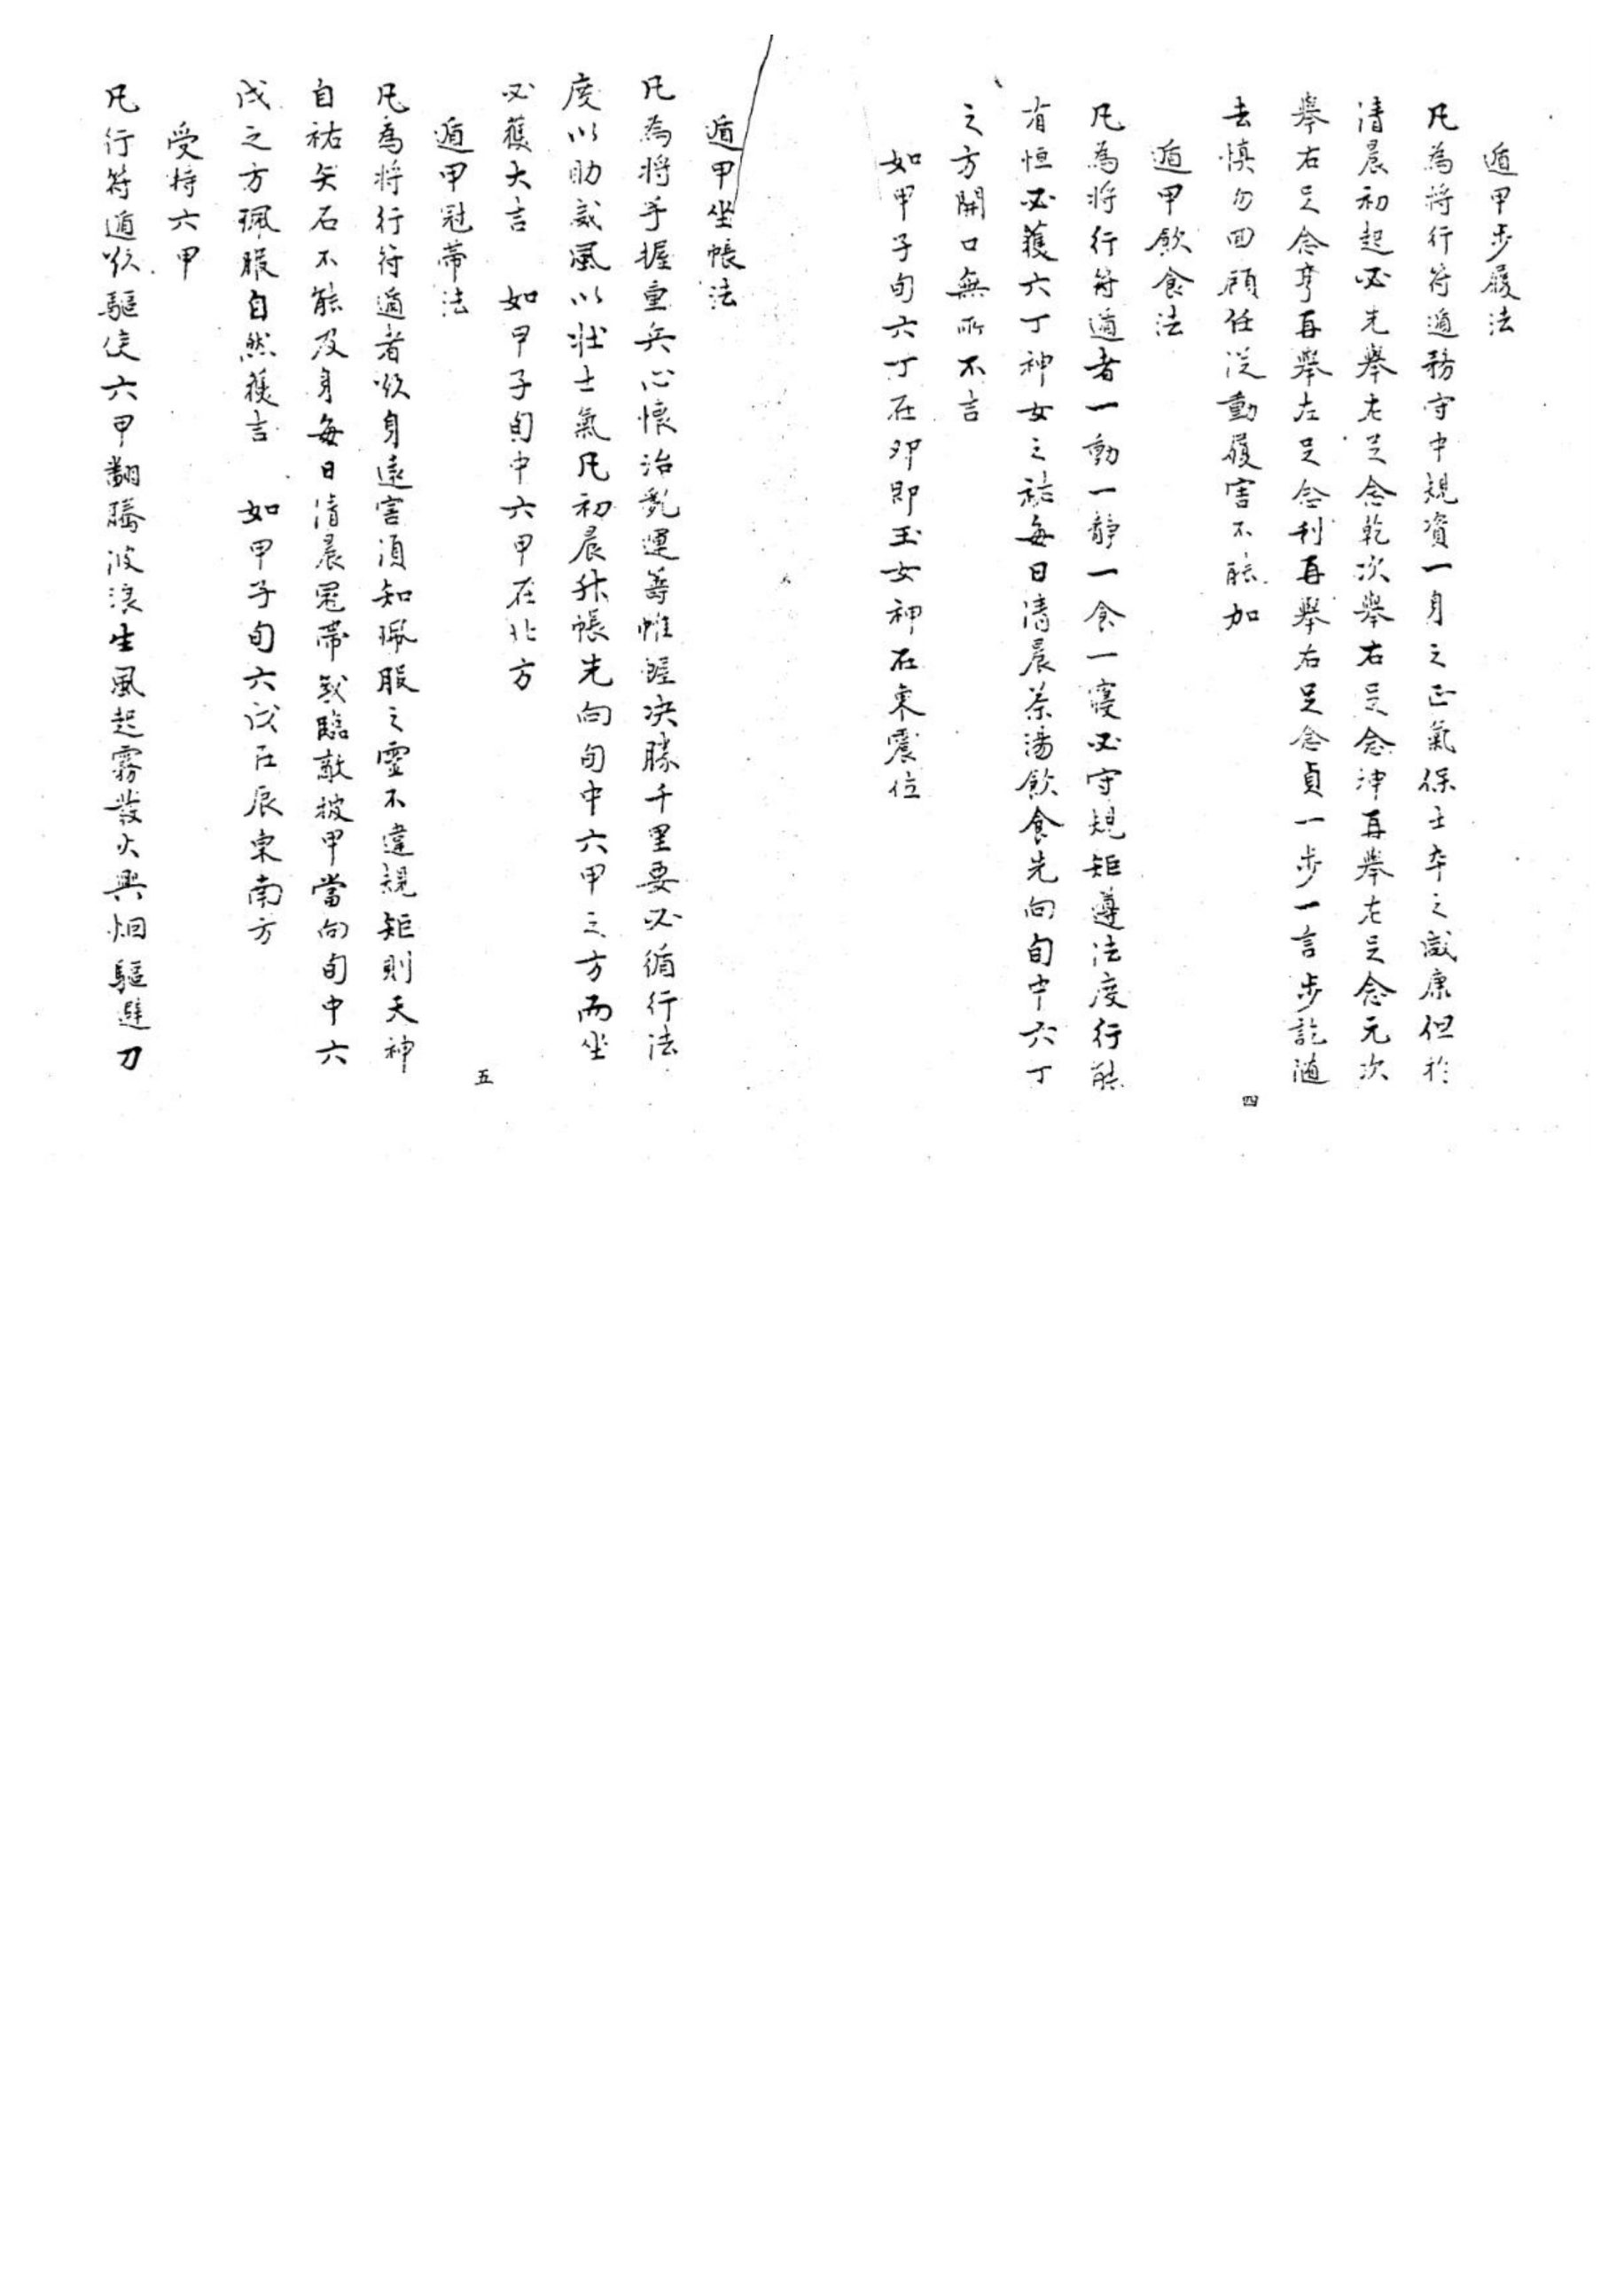 遁甲步履法
凡為將行符遁務守中規資一身之正氣保士卒之咸康但於
清晨初起必先舉左足念乾次舉右足念坤再舉左足念元次
舉右足念亨再舉左足念利再舉右足念貞一步一言步訖隨
去慎勿回顧任從動履害不能加
遁甲飲食法
凡為將行符遁者一動一靜一食一寢必守規矩遵法度行能
有恒必獲六丁神女之祐每日清晨茶湯飲食先向旬中六丁
之方開口無所不吉
如甲子旬六丁在卯即玉女神在東震位
四
遁甲坐帳法
凡為將手握重兵心懷治亂運籌帷幄决勝千里要必循行法
度以助威風以壯士氣凡初晨升帳先向旬中六甲之方而坐
必獲大吉 如甲子旬中六甲在北方
遁甲冠帶法
凡為將行符遁者欲身遠害須知珮服之靈不違規矩則天神
自祐矢石不能及身每日清晨冠帶或臨敵披甲當向旬中六
戊之方珮服自然獲吉 如甲子旬六戊在辰東南方
受持六甲
凡行符遁欲驅使六甲翻騰波浪生風起霧發火興烟驅避刀
五